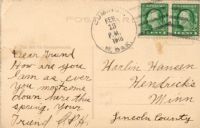 POST
FEB
13
P.M.
N. DAK.
Dear Friend
How are you
I am as ever
You must come
down here this
spring. Your
Friend
Harlin Hansen
Hendricks
Minn
Lincoln County